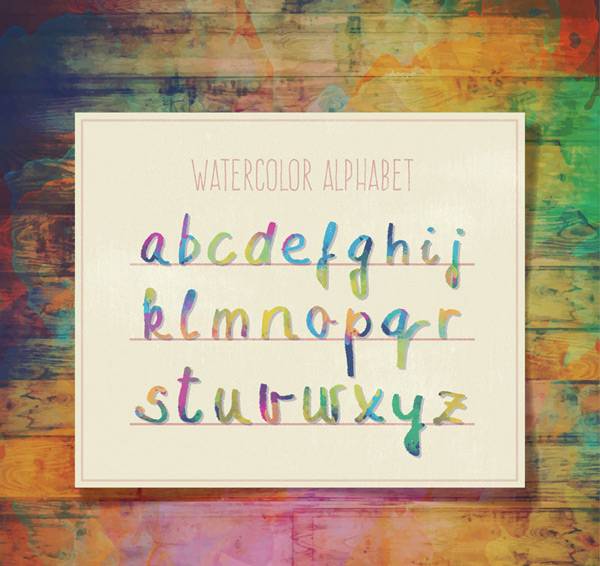 WATERCOLOR ALPHABET
abcdefghij
klmnopqr
stuvwxyz